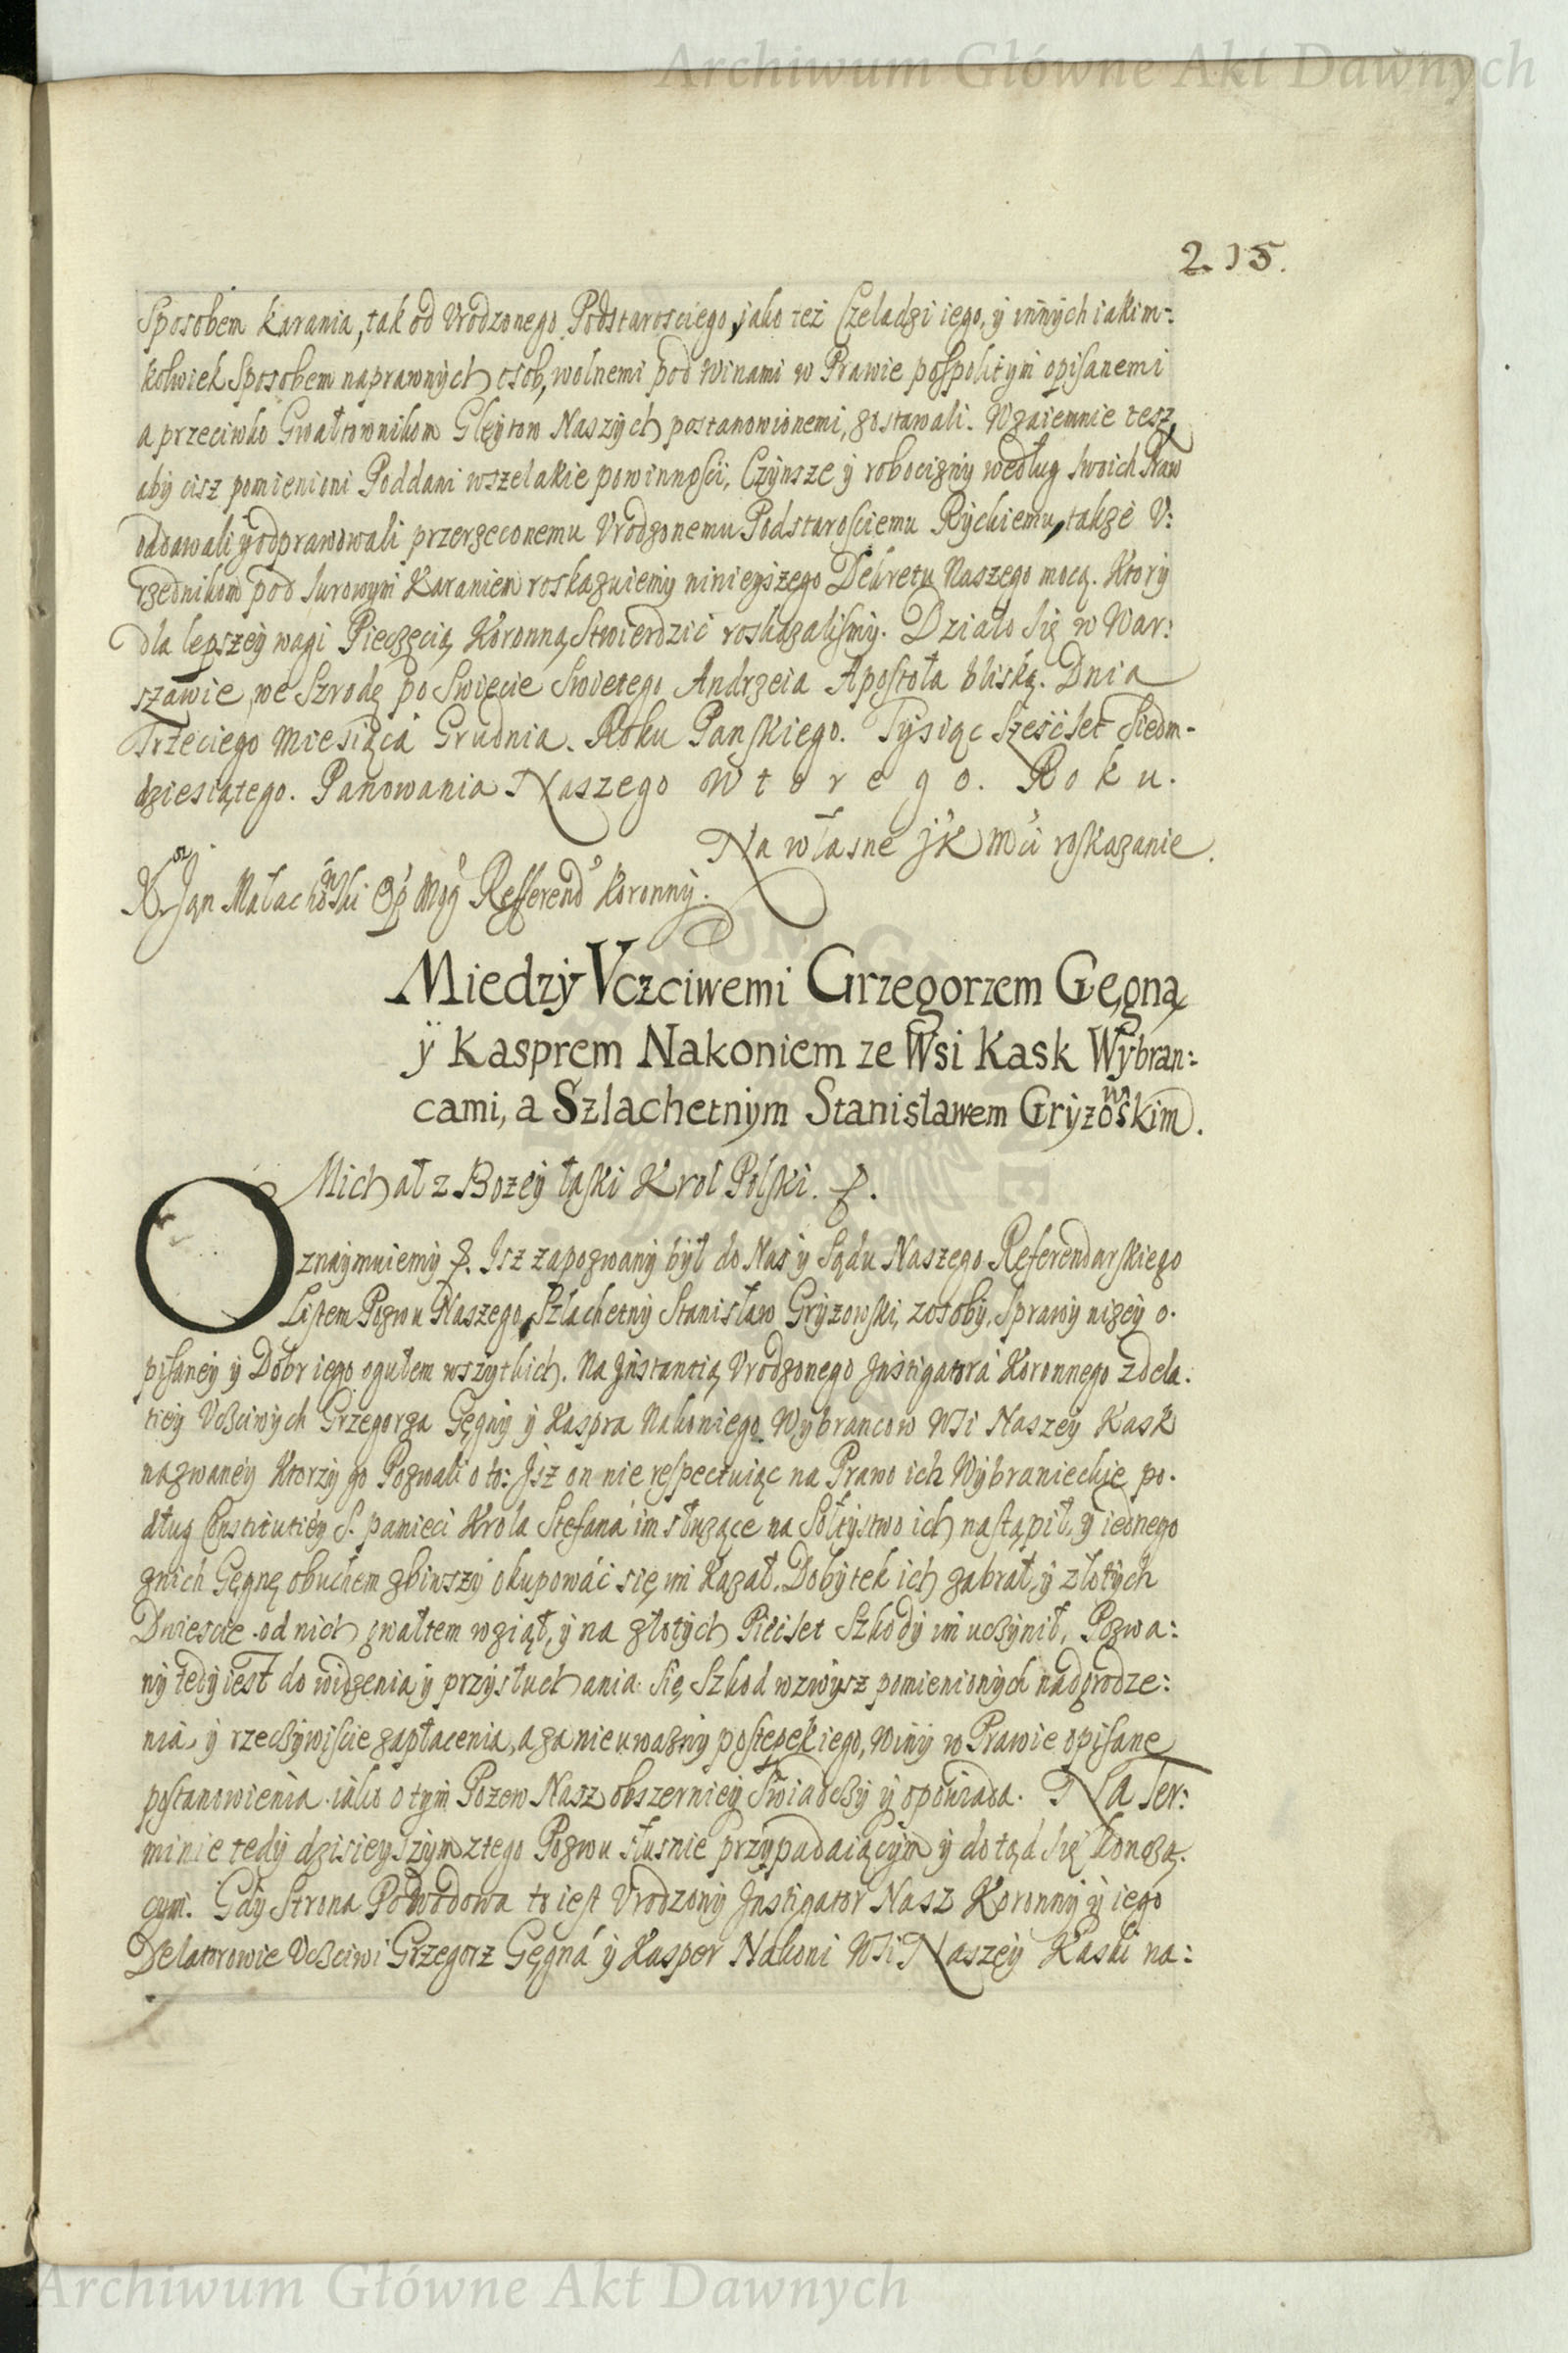 Archiwum Główne Akt Dawnych
215.
Sposobem karania, tak od Vrodzonego Podstarosciego, jako też Czeladzi iego, y innych iakim-:
kolwiek Sposobem naprawnych osob, wolnemi pod winami w Prawie pospolitym opisanemi
a przeciwko Gwałtownikom Gleytow Naszych postanowionemi, zostawali. Wzaiemnie tesz,
aby cisz pomienioni Poddani wszelakie powinności, Czynsze y robocizny według swoich Praw
oddawali y odprawowali przerzeconemu Vrodzonemu Podstarościemu Ryckiemu, także V:
rzednikom pod surowym Karaniem roskazuiemy ninieyszego Dekretu Naszego mocą. Ktory
dla lepszey wagi Pieczęcią Koronną Stwierdzić roskazalismy. Działo się w War:
szawie, we Szrodę po Swięcie Swietego Andrzeia Apostoła bliską. Dnia
Trzeciego Miesiąca Grudnia. Roku Panskiego. Tysiąc Sześćset Siedm-
dziesiątego. Panowania Naszego Wtorego. Roku.
Na własne JK Mci roskazanie.
X. Jan Małachowski Op Mog Refferend Koronny.
Miedzy Vczciwemi Grzegorzem Gęgną
ÿ Kasprem Nakoniem ze Wsi Kask Wybran:
cami, a Szlachetnym Stanisławem Gryzowskim.
Michał z Bozey łaski Krol Polski.
Oznaymuiemy. Isz zapozwany był do Nas y Sądu Naszego Referendarskiego
Listem Pozwu Naszego, Szlachetny Stanisław Gryzowski, zosoby, Sprawy nizey o-
pisaney y Dobr iego ogułem wszytkich. Na Jnstantią Vrodzonego Jnstigatora Koronnego zdela:
tiey Vcżciwych Grzegorza Gęgny y Kaspra Nakoniego Wybrancow Wsi Naszey Kask
nazwaney Ktorzy go Pozwali o to: Jsz on nie respectuiąc na Prawo ich Wybranieckie po-
dług Constitutiey S. pamieci Krola Stefana im służące na Sołtystwo ich nastąpił, y iednego
znich Gęgnę obuchem zbiwszy okupowáć się im Kazał. Dobytek ich zabrał, y złotych
Dwiescie od nich gwałtem wziął, y na złotych Pięćset Szkody im ucżynił, Pozwa:
ny tedy iest do widzenia y przysłuchania się Szkod wzwysz pomienionych nadgrodze:
nia, y rzecżywiscie zapłacenia, a za nieuwazny postępek iego, Winy w Prawie opisane
postanowienia iako o tym Pozew Nasz obszerniey Swiadcży y opowiada. Na Ter:
minie tedy dzisieyszym ztego Pozwu słusnie przypadaiącym y dotąd się konczą-
cym. Gdy Strona Powodowa to iest Vrodzony Jnstigator Nasz Koronny y iego
Delatorowie Vcżciwi Grzegorz Gęgná y Kasper Nakoni Wsi Naszey Kaski na:
Archiwum Główne Akt Dawnych